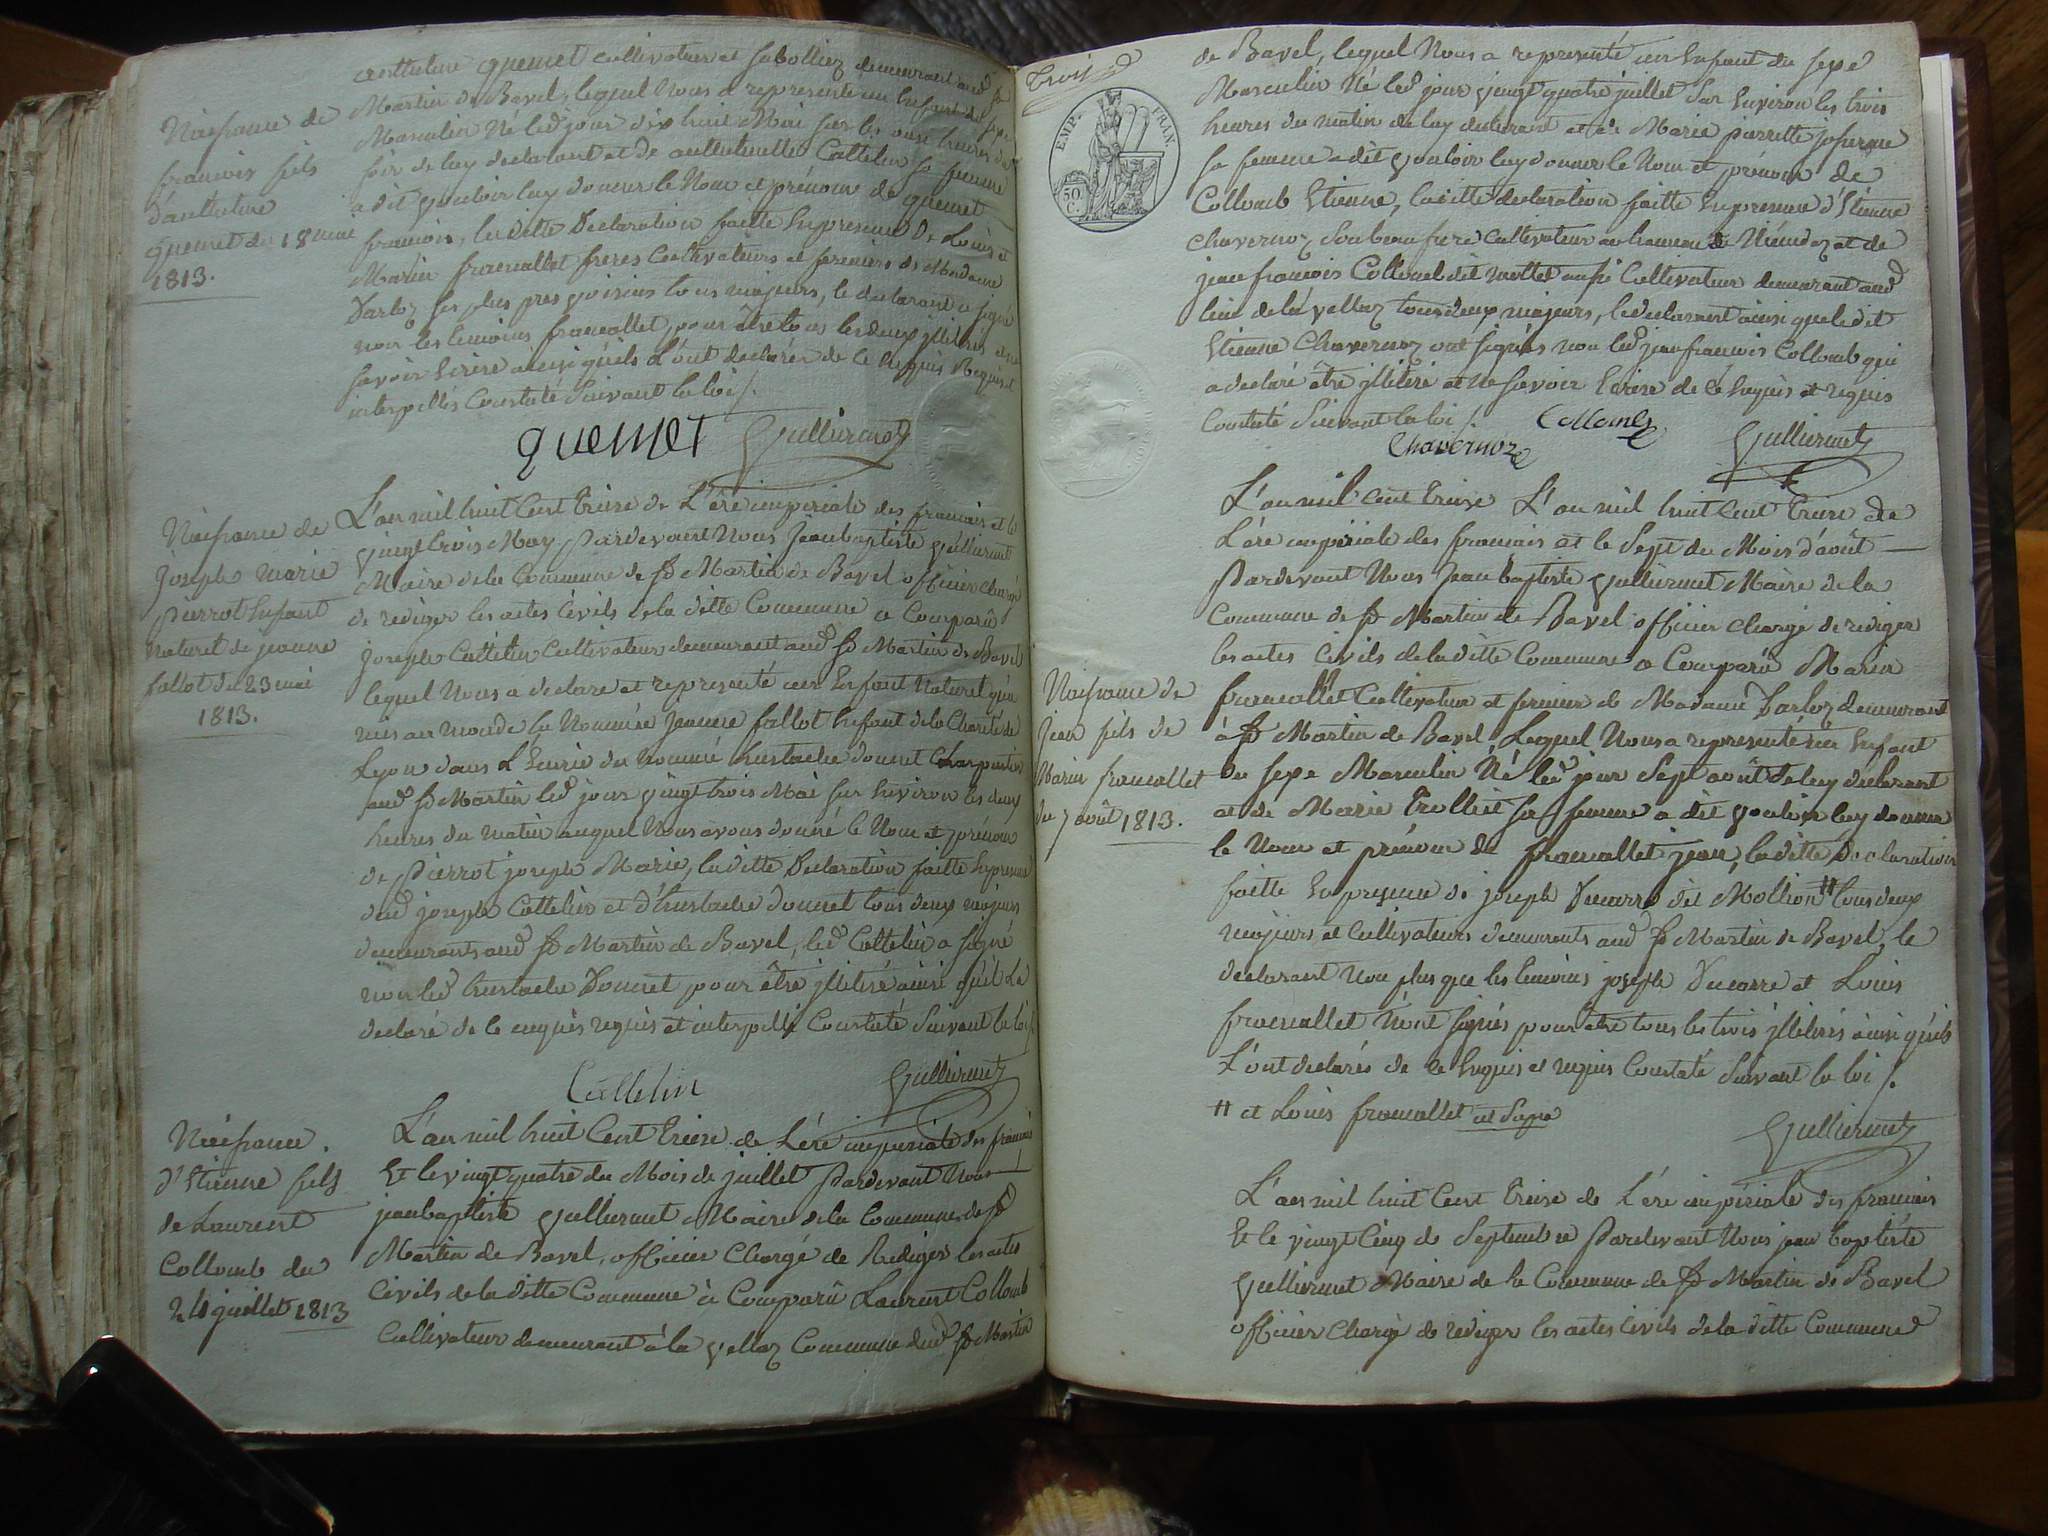 anthelme quemet cultivateur et sabottier demeurant aud St
Martin de Bavel, lequel Nous a representé un Enfant du sexe
Masculin Né led jour dix huit Mai sur les onze heures du
soir de luy declarant et de Cattelin sa femme
a dit vouloir luy donner le Nom et prénom de quemet
francois, laditte Declaration faitte En presence De Louis et
Marin francallet freres Cultivateurs et fermiers de Madame
Darloz ses plus pres voisins tous majeurs, le declarant a signé
non les temoins francallet, pour être tous les deux jlliterés et ne
savoir Ecrire ainsi qu'ils L'ont declarés de ce Enquis Requis et
interpellés Constaté Suivant la loi /.
quemet Gulliermet
Naissance de
francois fils
d'anthelme
quemet du 18 mai
1813.
L'an mil huit Cent Treize de L'ére imperiale des francais et le
vingt trois May Pardevant Nous Jean baptiste Gulliermet
Maire de la Commune de St Martin de Bavel officier chargé
de rediger les actes Civils de la ditte Commune a Comparû
Joseph Cattelin Cultivateur demeurant aud St Martin de Bavel
lequel Nous a declaré et representé un Enfant Naturel qu'a
mis au monde la Nommée Jeanne fallot Enfant de la Charité de
Lyon dans L'Ecurie du nommé Eustache Donnet Charpentier
aud St Martin led jour vingt trois Mai sur Environ les deux
heures du matin auquel Nous avons donné le Nom et prénom
de Pierrot joseph Marie, la ditte Declaration faitte En presence
dud joseph Cattelin et d'Eustache Donnet tous deux majeurs
demeurants aud St Martin de Bavel, led Cattelin a signé
non led Eustache Donnet pour être jlliteré ainsi qu'il L'a
declaré de ce enquis requis et interpellé Constaté Suivant la loi /.
Cattelin Gulliermet
Naissance de
joseph marie
pierrot Enfant
naturel de jeanne
fallot du 23 mai
1813.
L'an mil huit Cent Treize de L'ére imperiale des francais
Et le vingt quatre du Mois de juillet Pardevant Nous
jean baptiste Gulliermet Maire de la Commune de St
Martin de Bavel, officier Chargé de Rediger les actes
Civils de la ditte Commune à Comparû Laurent Collomb
Cultivateur demeurant à la vellaz Commune dud St Martin
Naissance
d'Etienne fils
de Laurent
Collomb du
24 juillet 1813
Trois
EMP. FRAN.
50 C.
de Bavel, lequel Nous a representé un Enfant du sexe
Masculin Né led jour vingt quatre juillet Sur Environ les trois
heures du matin de luy declarant et de Marie pierrette
sa femme a dit vouloir luy donner le Nom et prénom de
Collomb Etienne, laditte declaration faitte En presence d'Etienne
Chavernoz Son beau frere Cultivateur au hameau de et de
jean francois Collomb dit mollet aussi Cultivateur demeurant aud
lieu de la vellaz tous deux majeurs, le declarant ainsi que ledit
Etienne Chavernoz ont signés non led jean francois Collomb qui
a declaré être jlliteré et ne savoir Ecrire de ce Enquis et requis
Constaté Suivant la loi /. Collomb
Chavernoz Gulliermet
L'an mil Cent Treize L'an mil huit Cent Treize de
L'ére imperiale des francais et le Sept du Mois d'aoüt
Pardevant Nous Jean baptiste Gulliermet Maire de la
Commune de St Martin de Bavel officier chargé de rediger
les actes Civils de la ditte Commune a Comparû Marin
francallet Cultivateur et fermier de Madame Darloz demeurant
à St Martin de Bavel, Lequel Nous a representé un Enfant
du sexe Masculin Né led jour Sept août de luy declarant
et de Marie Trollliet sa femme a dit vouloir luy donner
le Nom et prénom de francallet jean, laditte Declaration
faitte En presence de joseph Ducarre dit Mollion # tous deux
majeurs et Cultivateurs demeurants aud St Martin de Bavel, le
declarant non plus que les temoins joseph Ducarre et Louis
francallet n'ont signés pour être tous les trois jlliterés ainsi qu'ils
L'ont declarés de ce Enquis et requis Constaté Suivant la loi /.
# et Louis francallet
Gulliermet
Naissance de
Jean fils de
Marin francallet
du 7 août 1813.
L'an mil huit Cent Treize de L'ére impériale des francais
Et le vingt Cinq de Septembre Pardevant Nous jean baptiste
Gulliermet Maire de la Commune de St Martin de Bavel
officier Chargé de rediger les actes Civils de la ditte Commune